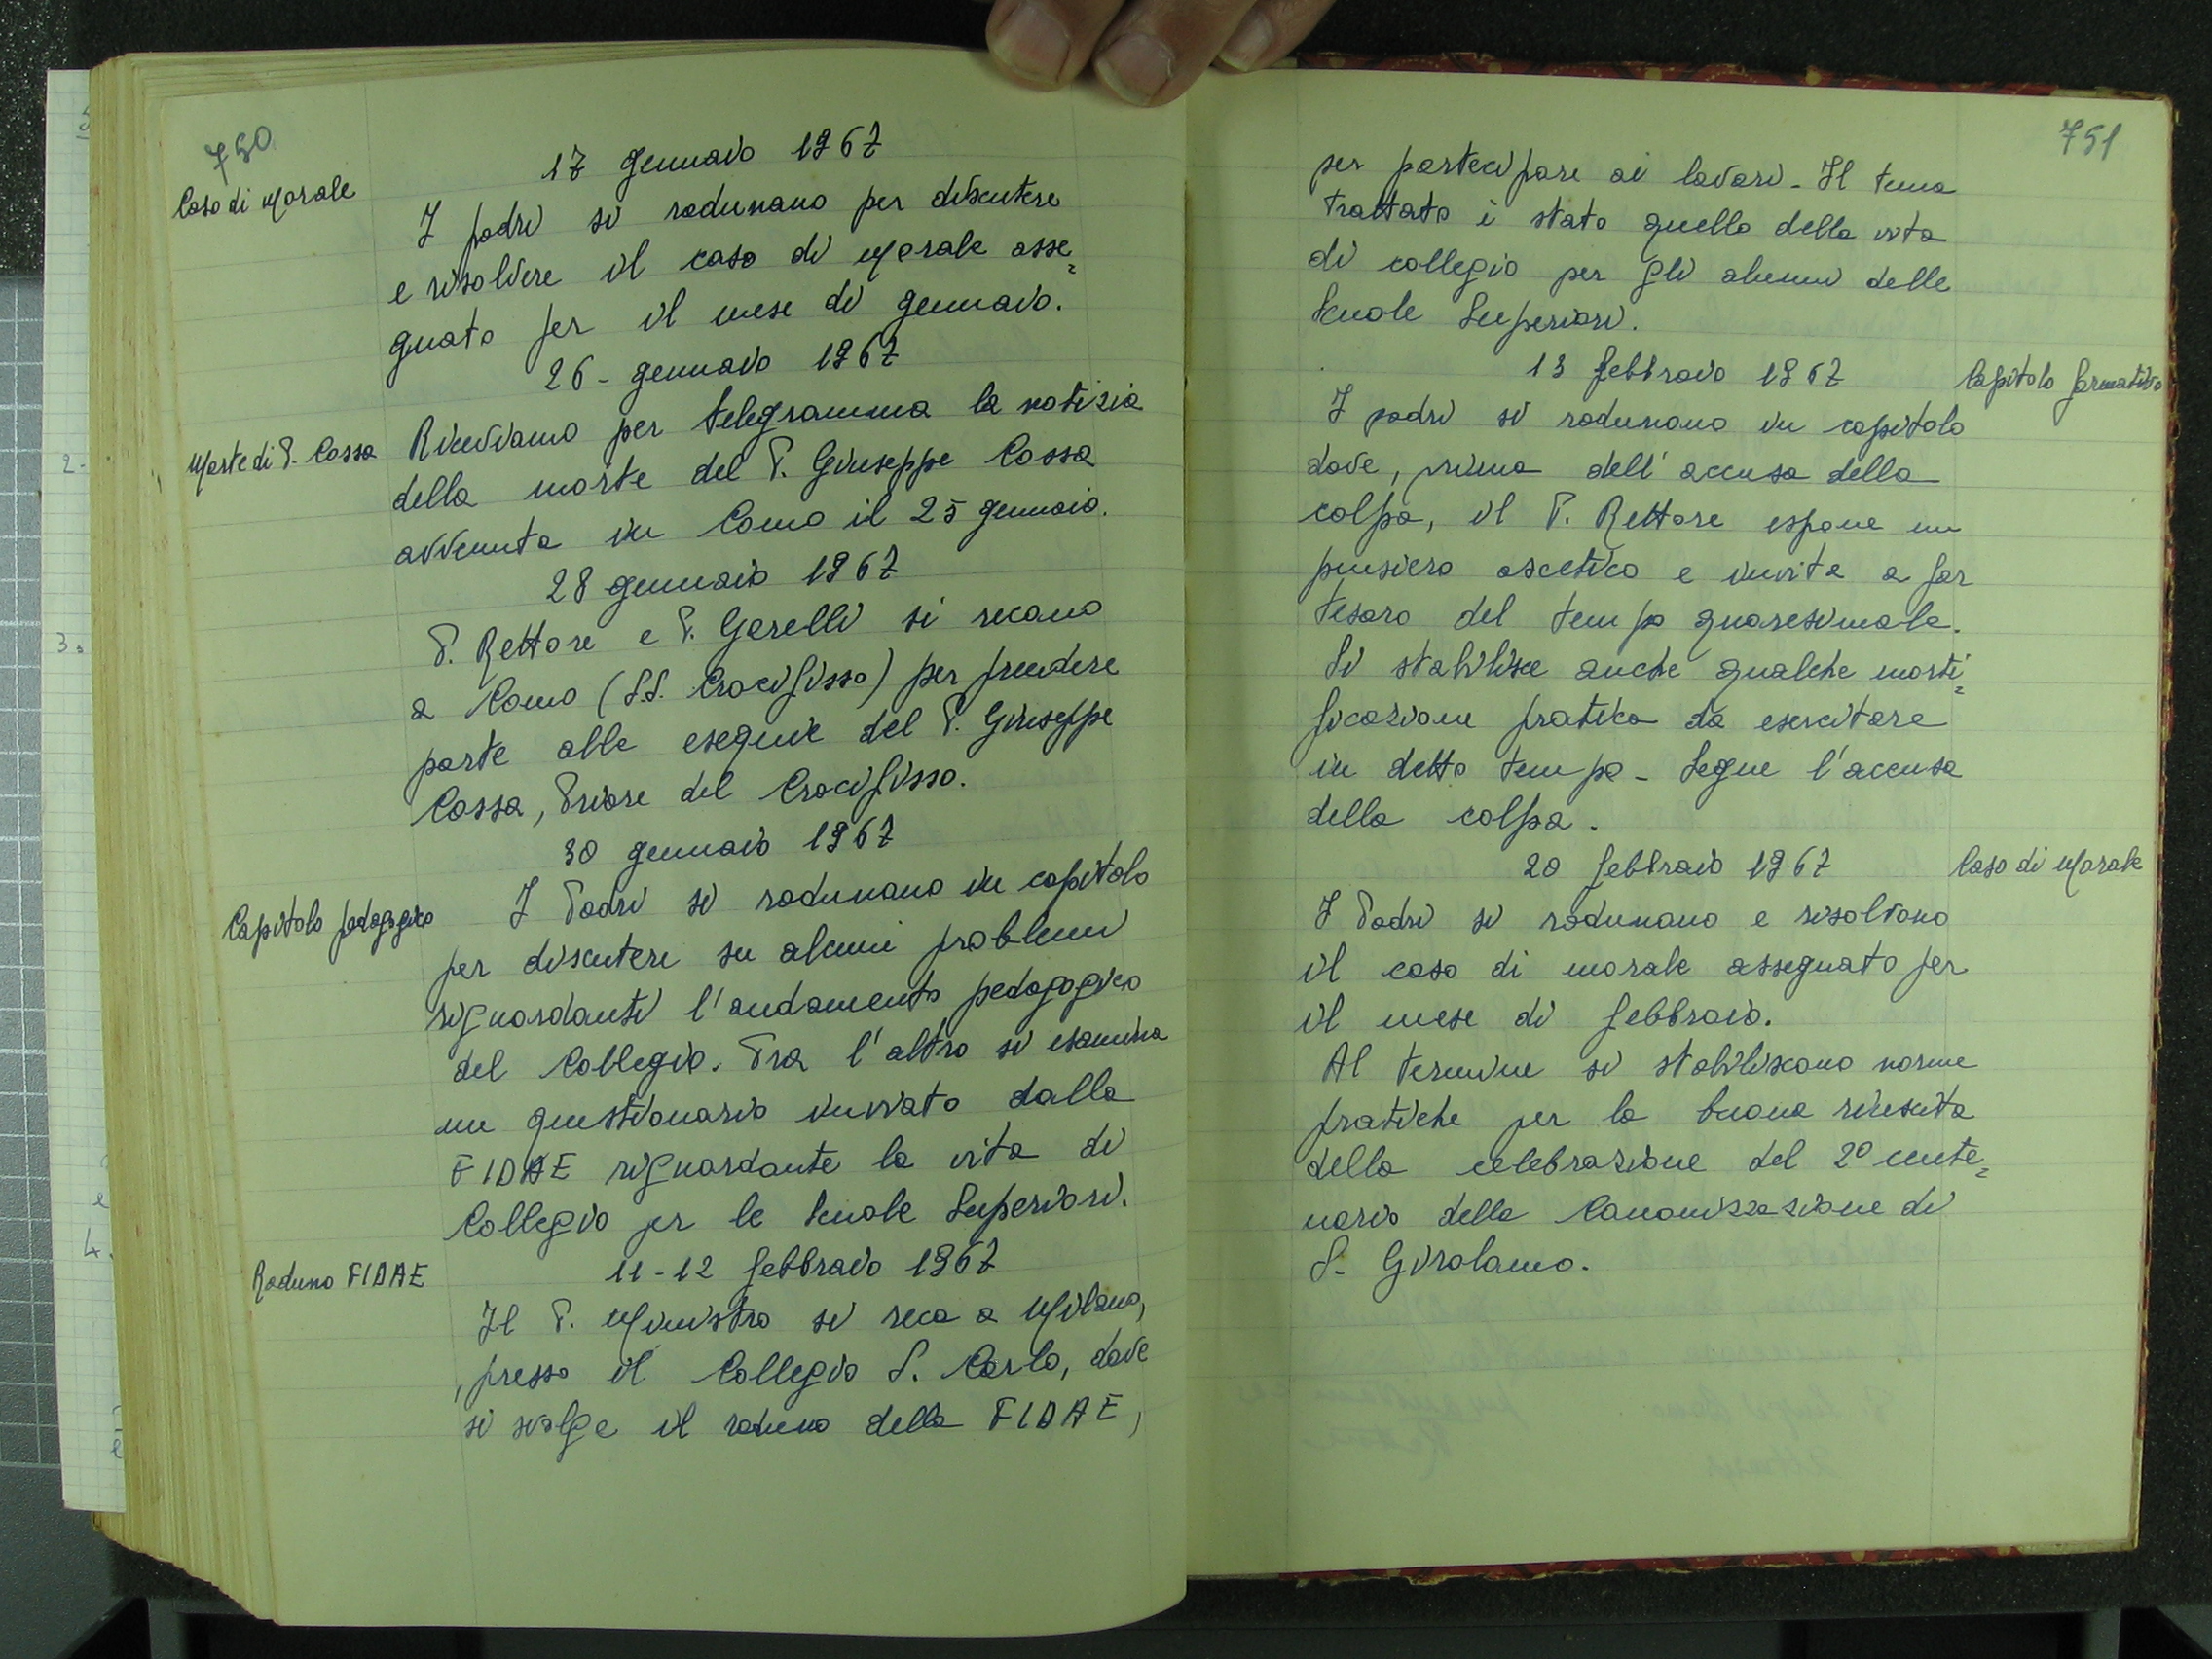 750
17 gennaio 1967
Caso di Morale
I padri si radunano per discutere
e risolvere il caso di Morale asse=
gnato per il mese di gennaio.
26 - gennaio 1967
Morte di P. Cossa
Riceviamo per telegramma la notizia
della morte del P. Giuseppe Cossa
avvenuta in Como il 25 gennaio.
28 gennaio 1967
P. Rettore e P. Gorelli si recano
a Como (SS. Crocifisso) per prendere
parte alle esequie del P. Giuseppe
Cossa, Priore del Crocifisso.
30 gennaio 1967
Capitolo pedagogico
I Padri si radunano in capitolo
per discutere su alcuni problemi
riguardanti l'andamento pedagogico
del Collegio. Tra l'altro si esamina
un questionario inviato dalla
FIDAE riguardante la vita di
Collegio per le Scuole Superiori.
11-12 febbraio 1967
Raduno FIDAE
Il P. Ministro si reca a Milano,
presso il Collegio S. Carlo, dove
si svolge il raduno della FIDAE,
751
per partecipare ai lavori - Il tema
trattato è stato quello della vita
di collegio per gli alunni delle
Scuole Superiori.
13 febbraio 1967
Capitolo formativo
I padri si radunano in capitolo
dove, prima dell'accusa della
colpa, il P. Rettore espone un
pensiero ascetico e invita a far
tesoro del tempo quaresimale.
Si stabilisce anche qualche morti=
ficazione pratica da esercitare
in detto tempo - Segue l'accusa
della colpa.
20 febbraio 1967
Caso di Morale
I Padri si radunano e risolvono
il caso di morale assegnato per
il mese di febbraio.
Al termine si stabiliscono norme
pratiche per la buona riuscita
della celebrazione del 2º cente=
nario della Canonizzazione di
S. Girolamo.